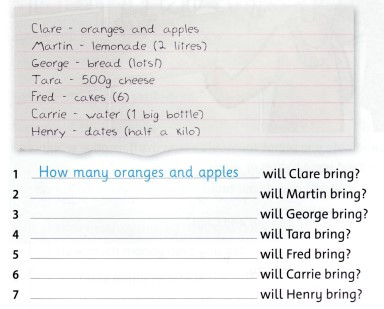 Clare - oranges and apples
Martin - lemonade (2 litres)
George - bread (lots!)
Tara - 500g cheese
Fred - cakes (6)
Carrie - water (1 big bottle)
Henry - dates (half a kilo)
1 How many oranges and apples will Clare bring?
2 will Martin bring?
3 will George bring?
4 will Tara bring?
5 will Fred bring?
6 will Carrie bring?
7 will Henry bring?